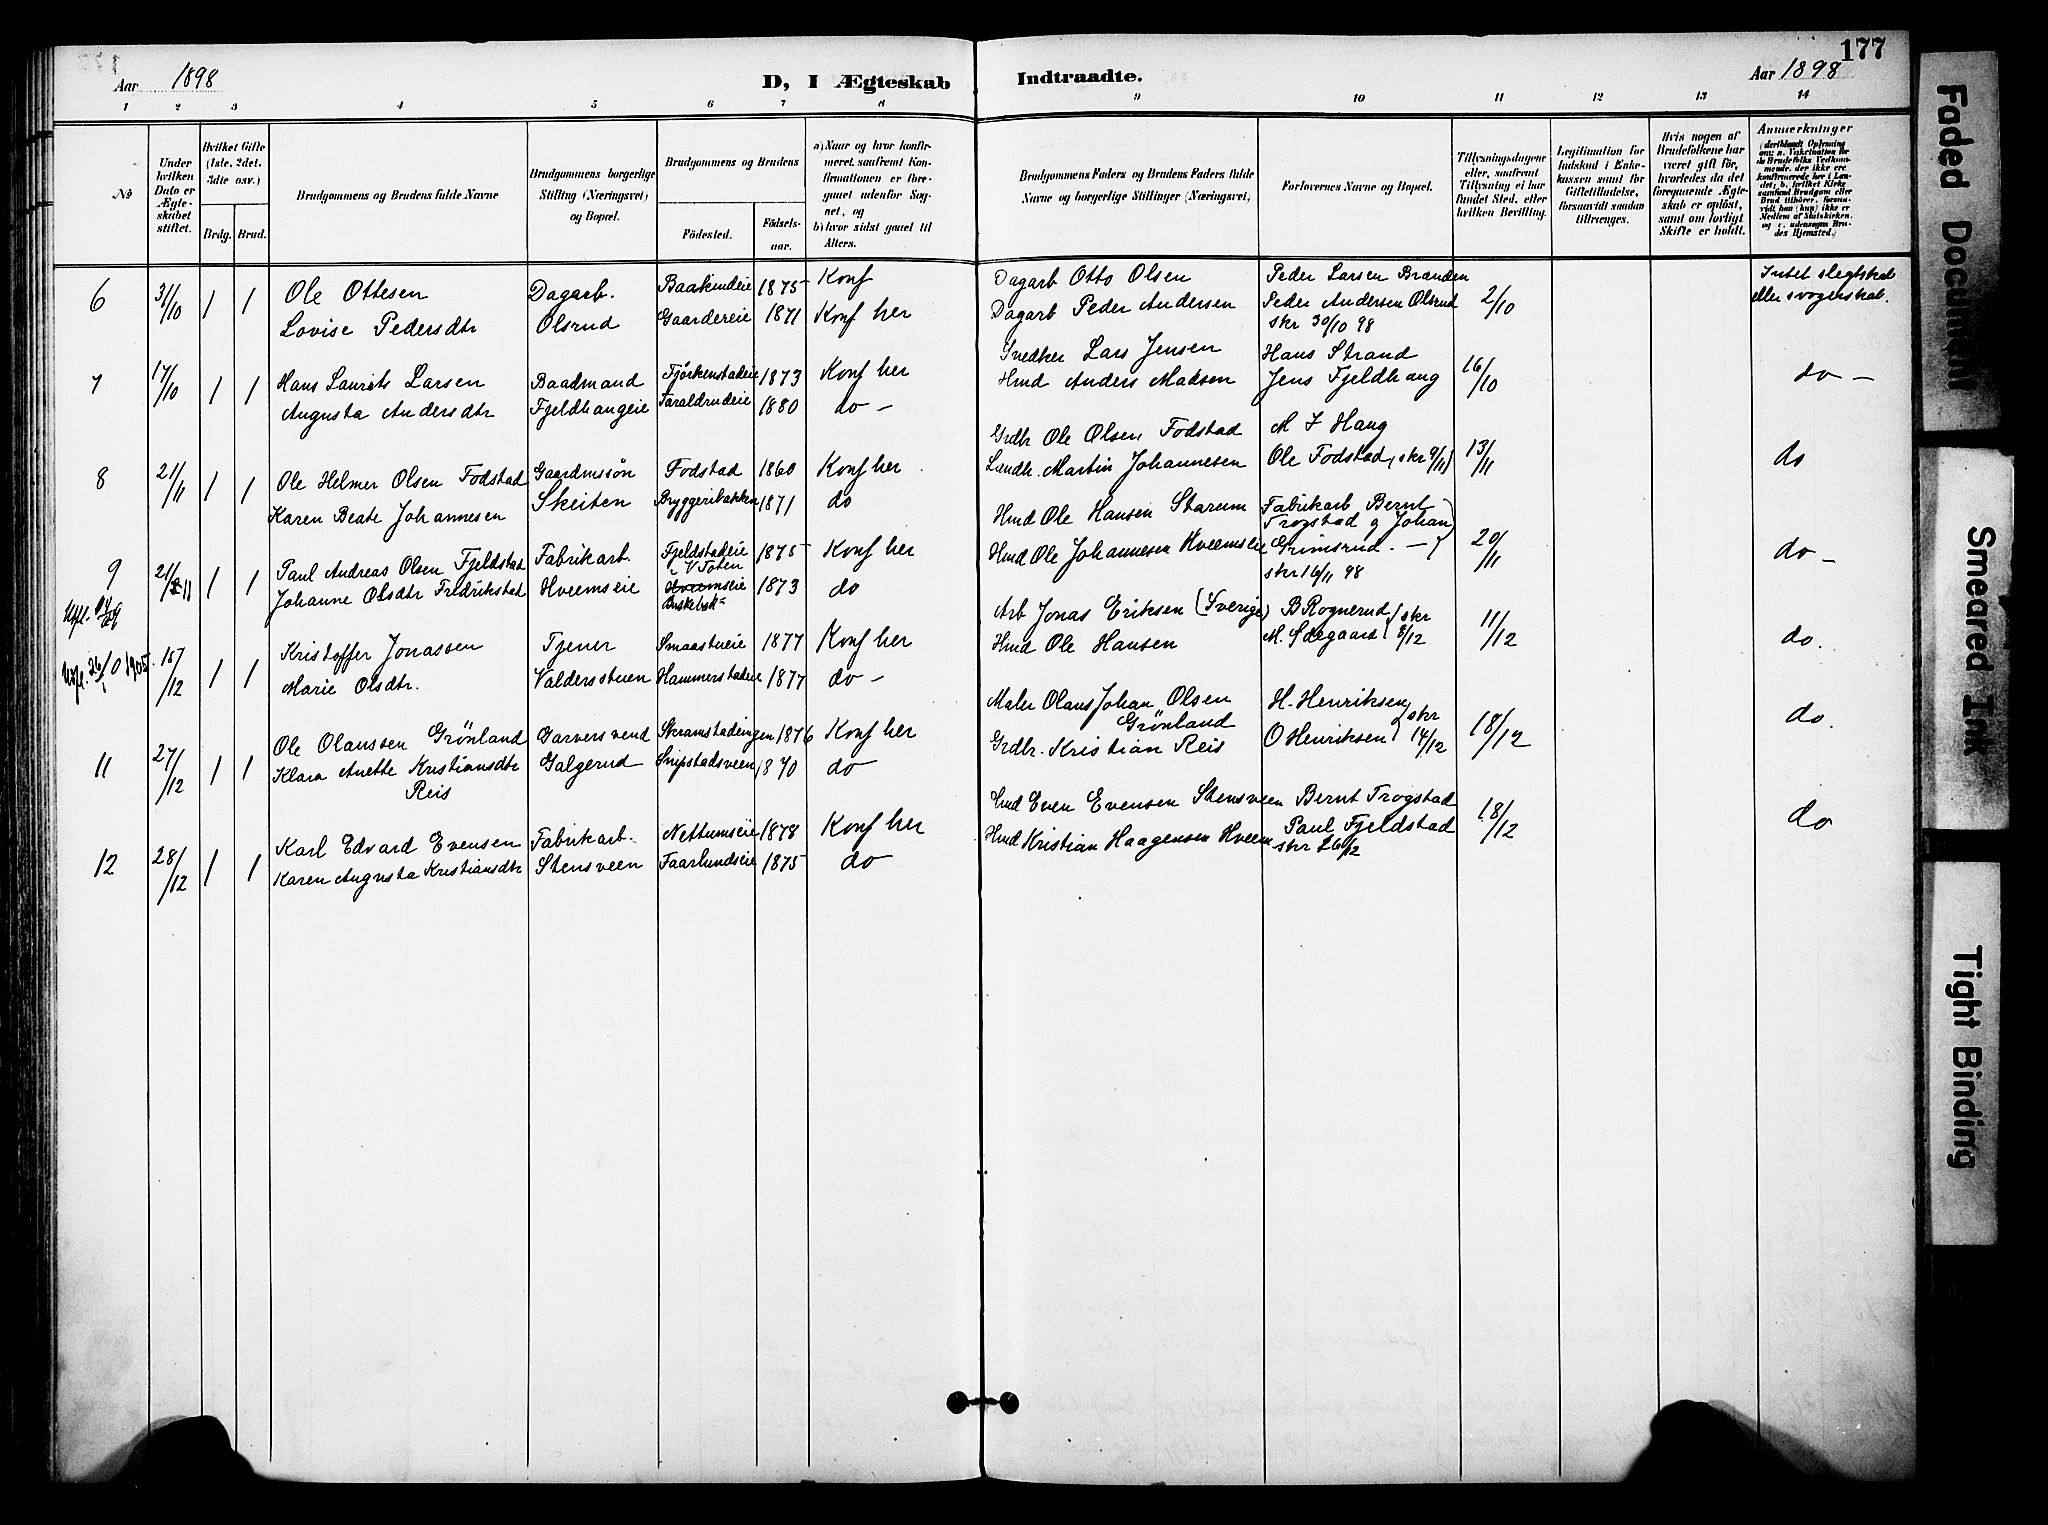 177
Aar 1898
D, I Ægteskab
Indtraadte.
Aar 1898
1 2 3 4 5 6 7 8
9 10 11 12 13 14
No
Under hvilken Dato er Ægteskabet stiftet.
Hvilket Gifte (1ste, 2det, 3dte osv.)
Brdg. Brud.
Brudgommens og Brudens fulde Navne
Brudgommens borgerlige Stilling (Næringsvei) og Bopæl.
Brudgommens og Brudens
Födested.
Födselsaar.
a) Naar og hvor konfirmeret, saafremt Konfirmationen er foregaaet udenfor Sognet, og
b) hvor sidst gaaet til Alters.
Brudgommens Faders og Brudens Faders fulde Navne og borgerlige Stillinger (Næringsvei)
Forlovernes Navne og Bopæl.
Tillysningsdagene eller, saafremt Tillysning ei har fundet Sted, efter hvilken Bevilling.
Legitimation for Indskud i Enkekassen samt for Giftetilladelse, forsaavidt saadan tiltrænges.
Hvis nogen af Brudefolkene har været gift før, hvorledes da det foregaaende Ægteskab er oplöst, samt om lovligt Skifte er holdt.
Anmærkninger
(deriblandt Oplysning om: a. Vakcination for de Brudefolks Vedkommende, der ikke ere konfirmerede her i Landet; b. hvilket Kirkesamfund Brudgom eller Brud tilhører, forsaavidt han (hun) ikke er Medlem af Statskirken, og c. udensogns Brudes Hjemsted.)
6 31/10 1 1 Ole Ottesen Dagarb. Baakindeie 1875 Konf
Lovise Pedersdtr Olsrud Gaardereie 1871 Konf her
Dagarb Otto Olsen Peder Larsen Brænden 2/10 Intet slegtskab
Dagarb Peder Andersen Peder Andersen Olsrud eller svogerskab.
skr 30/10 98
7 17/10 1 1 Hans Laurits Larsen Baadmand 1873 Konf her
Augusta Andersdtr Fjeldhaugeie Taraldrudeie 1880 do -
Snedker Lars Jensen Hans Strand 16/10 do -
Hmd Anders Madsen Jens Fjeldhaug
8 21/11 1 1 Ole Helmer Olsen Fodstad Gaardmssøn Fodstad 1860 Konf her
Karen Beate Johannesen Skeiten Bryggeribakken 1871 do
Grdbr Ole Olsen Fodstad M J Haug 13/11 do
Landh. Martin Johannesen Ole Fodstad (skr 9/11)
9 21/11 1 1 Paul Andreas Olsen Fjeldstad Fabrikarb. Fjeldstadeie V Toten 1875 Konf her
Johanne Olsdtr Fredrikstad Hveemseie Hveemseie 1873 do
Hmd Ole Hansen Starum Fabrikarb Bernt Trogstad g Johan
Hmd Ole Johannesen Hveemseie Grimsrud. - 20/11 do -
skr 16/11 98
18/12 1 1 Kristoffer Jonassen Tjener Smaastueie 1877 Konf her
Marie Olsdtr. Valdersstuen Hammerstadeie 1877 do -
Arb Jonas Eriksen (Sverige) B Rognerud skr 11/12 do.
Hmd Ole Hansen M. Ødegaard 8/12
11 27/12 1 1 Ole Olaussen Grönland Garversvend Skramstadeingen 1876 Konf her
Klara Anette Kristiansdtr Reis Galgerud Snipstadsveen 1870 do
Maler Olaus Johan Olsen Grönland H. Henriksen skr 18/12 do.
Grdbr. Kristian Reis O Henriksen 14/12
12 28/12 1 1 Karl Edvard Evensen Fabrikarb. Nettumseie 1878 Konf her
Karen Augusta Kristiansdtr Stensveen Faarlundseie 1875 do
Hmd Even Evensen Stensveen Bernt Trogstad 18/12 do
Hmd Kristian Haagensen Hveem Paul Fjeldstad
skr 16/12
Faded Document
Smeared Ink
Tight Binding